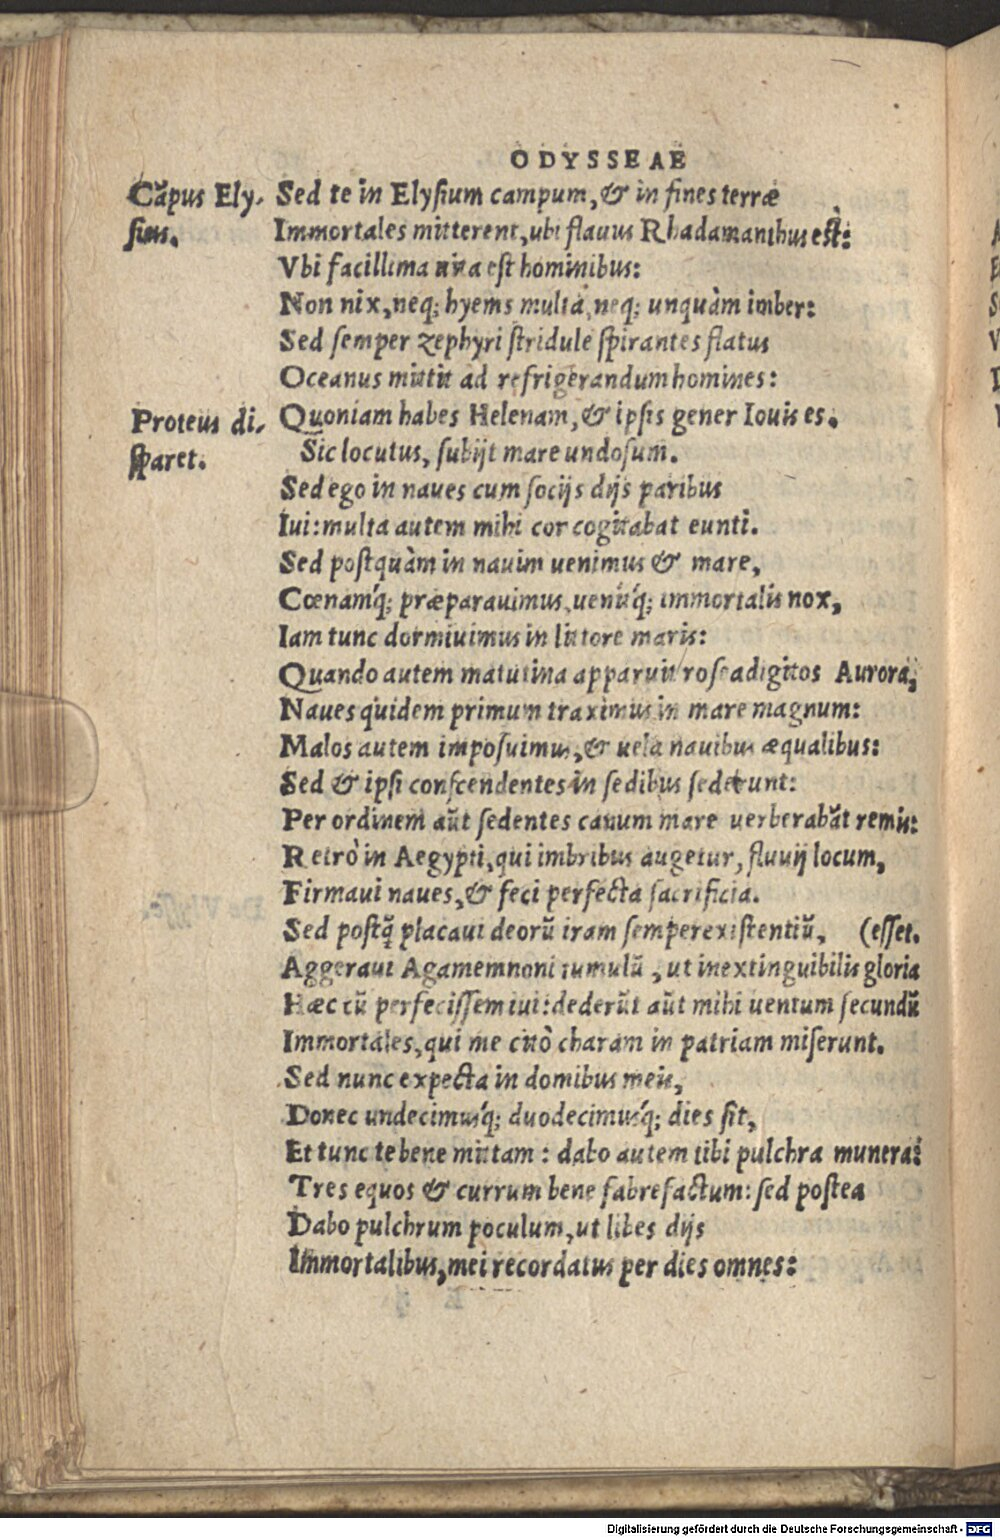 ODYSSEAE
Cãpus Ely-
sius.
Sed te in Elysium campum, & in fines terræ
Immortales mitterent, ubi flauus Rhadamanthus est:
Vbi facillima uita est hominibus:
Non nix, neq; hyems multa, neq; unquàm imber:
Sed semper zephyri stridule spirantes flatus
Oceanus mittit ad refrigerandum homines:
Proteus di-
sparet.
Quoniam habes Helenam, & ipsis gener Iouis es.
Sic locutus, subijt mare undosum.
Sed ego in naues cum socijs dijs paribus
Iui: multa autem mihi cor cogitabat eunti.
Sed postquàm in nauim uenimus & mare,
Cœnamq́; præparauimus, uenitq́; immortalis nox,
Iam tunc dormiuimus in littore maris:
Quando autem matutina apparuit roseadigitos Aurora,
Naues quidem primum traximus in mare magnum:
Malos autem imposuimus, & uela nauibus æqualibus:
Sed & ipsi conscendentes in sedibus sederunt:
Per ordinem aũt sedentes canum mare uerberabãt remis:
Retrò in Aegypti, qui imbribus augetur, fluuij locum,
Firmaui naues, & feci perfecta sacrificia.
Sed postq̃ placaui deorũ iram semperexistentiũ, (esset.
Aggeraui Agamemnoni tumulũ, ut inextinguibilis gloria
Hæc cũ perfecissem iui: dederũt aũt mihi uentum secundũ
Immortales, qui me citò charam in patriam miserunt.
Sed nunc expecta in domibus meis,
Donec undecimusq́; duodecimusq́; dies sit,
Et tunc te bene mittam: dabo autem tibi pulchra munera:
Tres equos & currum bene fabrefactum: sed postea
Dabo pulchrum poculum, ut libes dijs
Immortalibus, mei recordatus per dies omnes:
Digitalisierung gefördert durch die Deutsche Forschungsgemeinschaft - DFG